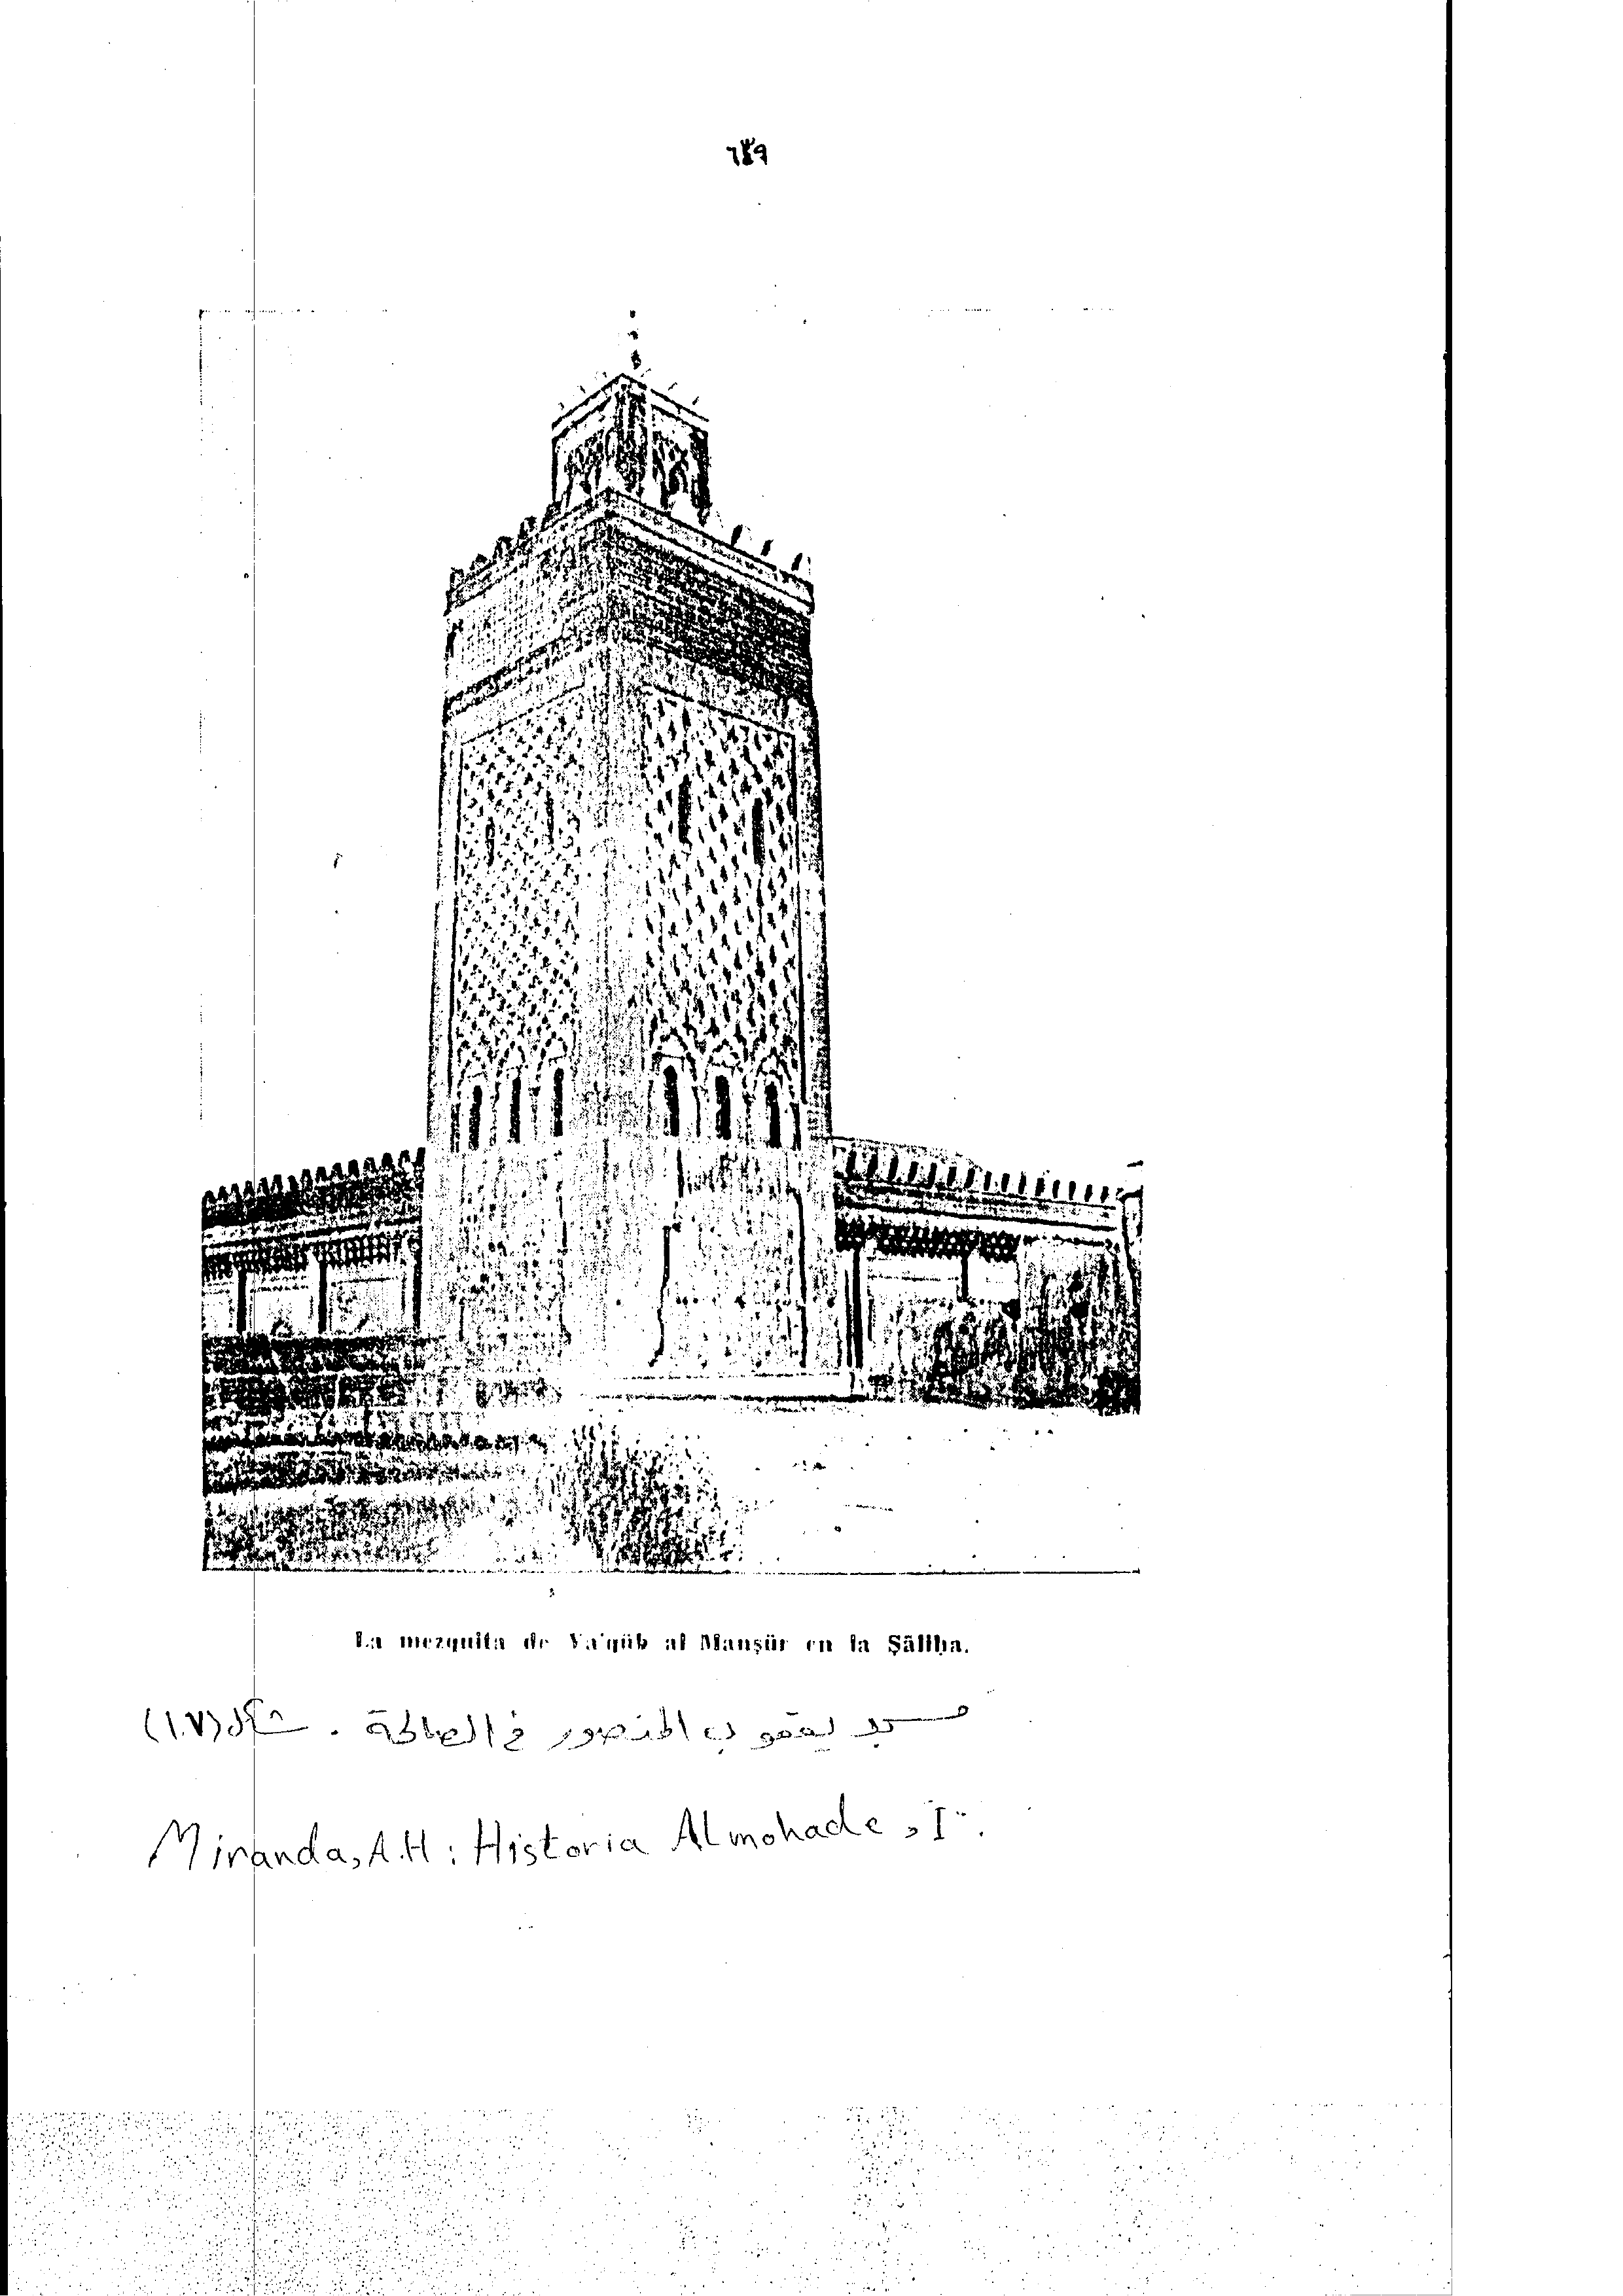 La mezquita de Ya'qūb al Manṣūr en la Ṣāliḥa.
مسجد يعقوب المنصور في الصالحة . شكل (١٠٧)
Miranda, A.H : Historia Almohade , I .